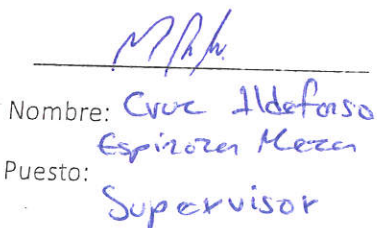 Nombre: Cruz Ildefonso
Espinoza Meza
Puesto:
Supervisor